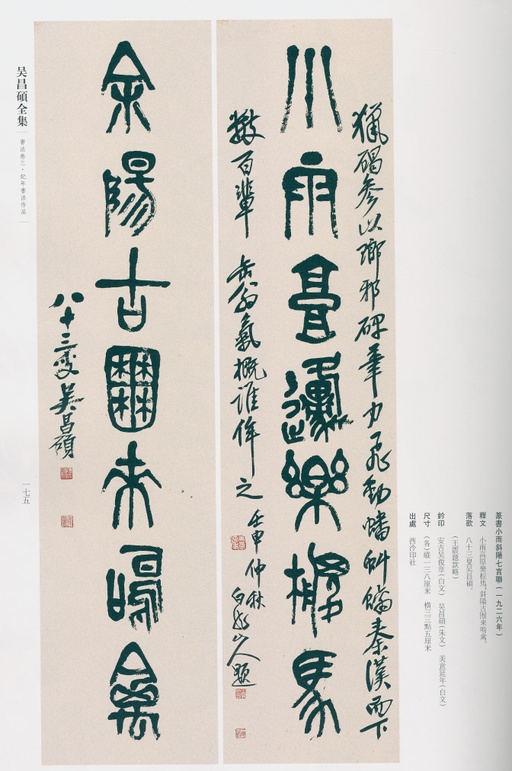 篆書小雨斜陽七言聯（一九二六年）
釋文 小雨高原樂馬，斜陽古囿來鳴禽。
落款 八十三叟吳昌碩。
（王震題款略）
鈐印 安吉吳俊章（白文） 吳昌碩（朱文） 美意延年（白文）
尺寸 （各）縱一三八厘米 橫三三點五厘米
出處 西泠印社
獵碣參以瑯邪碑筆力飛動蟠秦漢而下
小雨高邍樂馬
數百輩 缶翁氣概誰侔之 壬申仲秋白龍山人題
余陽古囿來鳴禽
八十三叟吳昌碩
吳昌碩全集
書法卷三·紀年書法作品
一七五